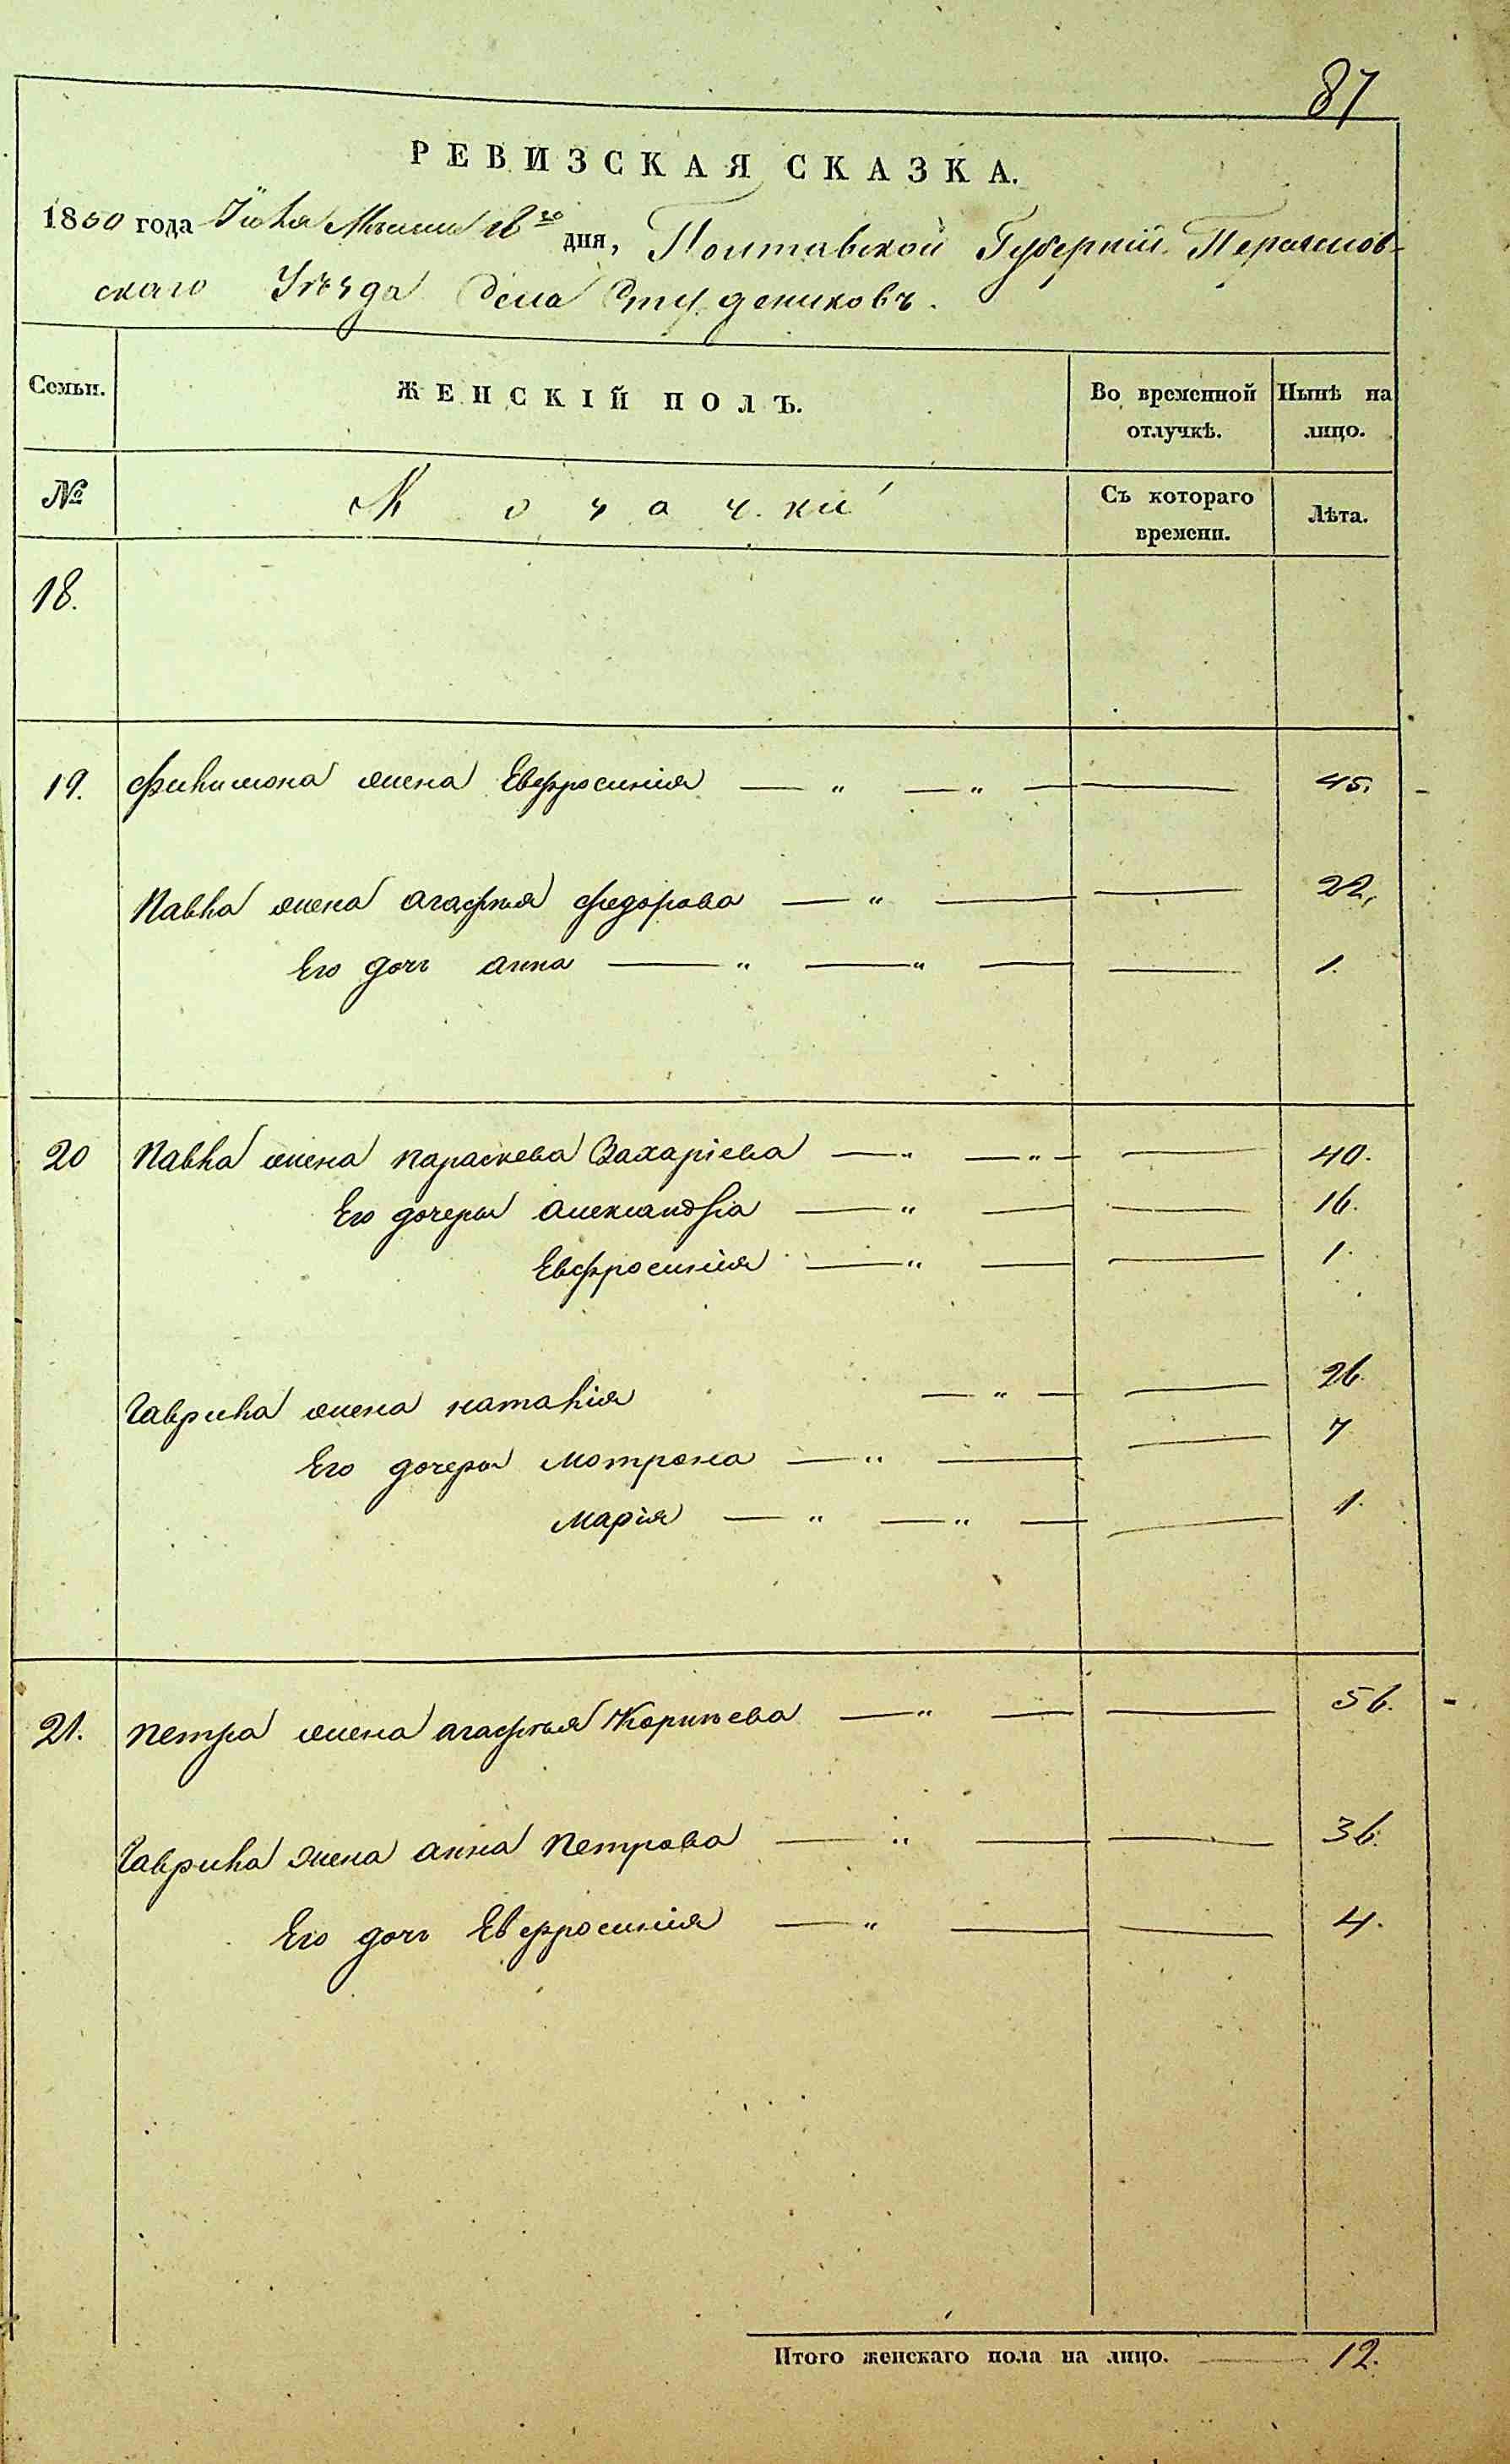 87
РЕВИЗСКАЯ СКАЗКА.
1850 года Іюля Месяца 16го дня, Полтавской Губерніи Переяслов-
скаго Уѣзда Села Студениковъ.
Семьи. ЖЕНСКІЙ ПОЛЪ. Во временной отлучкѣ. Нынѣ на лицо.
№ Козачки Съ котораго времени. Лѣта.
18.
19. Филимона жена Евфросинія — " — " — — 45.
Павла жена агафія федорова — " — — 22.
Его дочь анна — " — " — — 1.
20 Павла жена параскева Захаріева — " — " — — 40.
Его дочеры александра — " — — 16.
Евфросинія — " — — 1.
Гаврила жена наталія — " — — 26.
Его дочеры мотрона — " — — 7
марія — " — " — — 1.
21. петра жена агафія Корнѣева — " — — 56.
Гаврила жена анна Петрова — " — — 36.
Его дочь Евфросинія — " — — 4.
Итого женскаго пола на лицо. — 12.